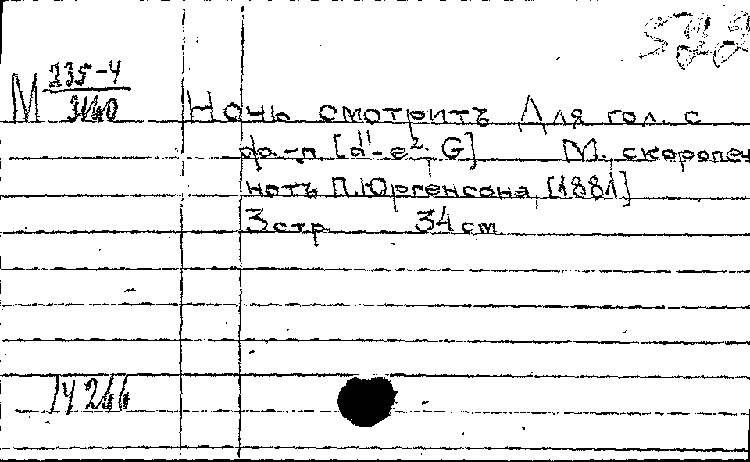 522
М 235-4
3140
Ночь смотритъ Для гол. с
ф-п [d¹-e². G] М., скоропеч
нотъ П. Юргенсона, [1881]
3 стр 34 см
14266